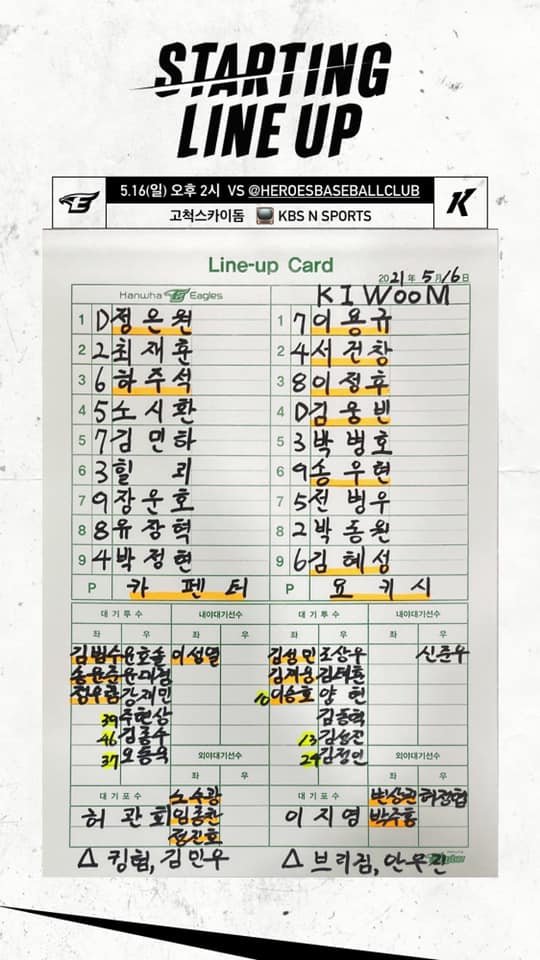 STARTING
LINE UP
5.16(일) 오후 2시 VS @HEROESBASEBALLCLUB
고척스카이돔 KBS N SPORTS
Line-up Card
2021年 5月 16日
Hanwha Eagles KIWOOM
1 D 정은원 1 7 이용규
2 2 최재훈 2 4 서건창
3 6 하주석 3 8 이정후
4 5 노시환 4 D 김웅빈
5 7 김민하 5 3 박병호
6 3 힐리 6 9 송우현
7 9 장운호 7 5 전병우
8 8 유장혁 8 2 박동원
9 4 박정현 9 6 김혜성
P 카펜터 P 요키시
대기투수 내야대기선수 대기투수 내야대기선수
좌 우 좌 우 좌 우 좌 우
김범수 윤호솔 이성열 김성민 조상우 신준우
송윤준 윤대경 김재웅 김태훈
정우람 강재민 10 이승호 양현
39 주현상 김동혁
46 김종수 13 김성진
37 오동욱 외야대기선수 29 김정인 외야대기선수
좌 우 좌 우
대기포수 노수광 대기포수 변상권
허관회 임종찬 이지영 박주홍
정진호
△ 킹험, 김민우 △ 브리검, 안우진